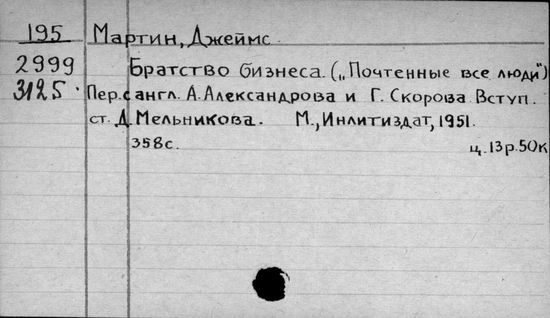 195 Мартин, Джеймс.
2999 Братство бизнеса. („Почтенные все люди")
3125. Пер. с англ. А. Александрова и Г. Скорова. Вступ.
ст. Д. Мельникова. М., Инлитиздат, 1951.
358с. ц. 13р. 50к